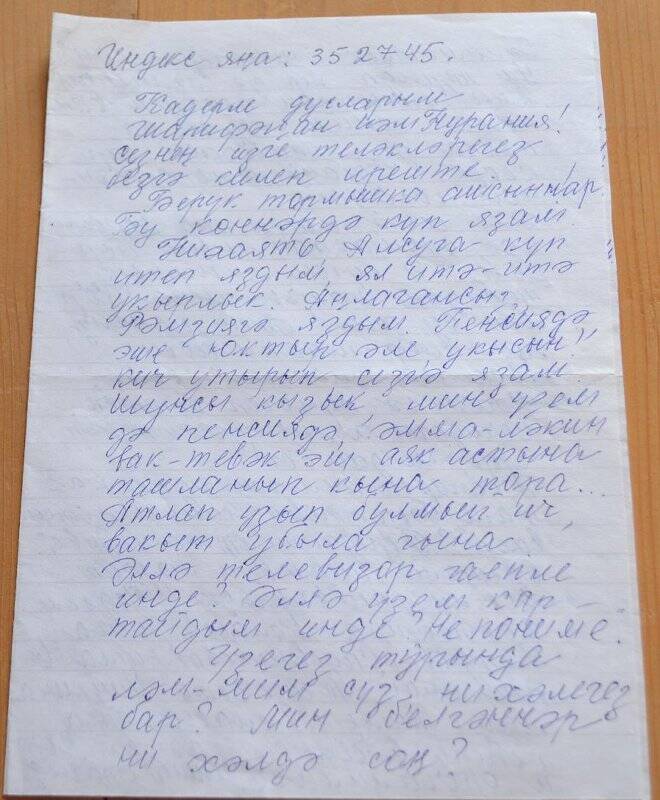 Индекс яңа: 352745.
Кадерле дусларым
Шәрифҗан һәм Нурания!
сезнең изге теләкләрегез
безгә килеп иреште.
Берүк тормышка ашсыннар!
Бу көннәрдә күп язам.
Ниһаять, Алсуга күп
итеп яздым, ял итә-итә
укырлык. Аңлагансыз,
Рәмзиягә яздым. Пенсиядә
эше юктыр әле, укысын!
кич утырып, сезгә язам.
шунсы кызык, мин үзем
дә пенсиядә, әмма-ләкин
вак-төяк эш аяк астына
ташланып кына тора...
Атлап узып булмый ич,
вакыт убыла гына.
Әллә телевизор гаепле
инде? Әллә үзем кар-
тайдым инде? Не пойиме.
Үзегез турында
ләм-мим сүз, ни хәлегез
бар? Мин белгәннәр
ни хәлдә соң?